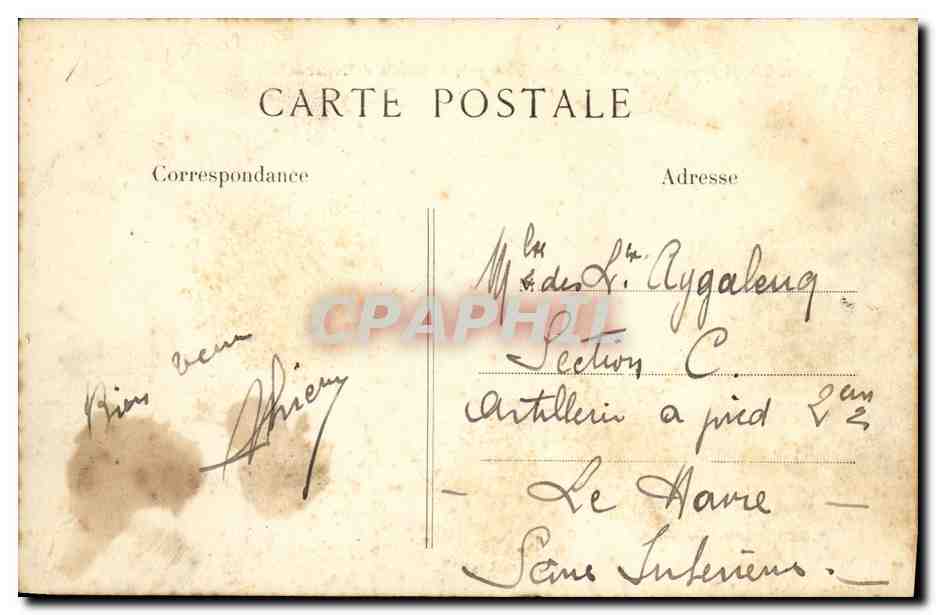 CARTE POSTALE
Correspondance
Adresse
Bien venu
Thiery
des Lis Aygalenq
Section C.
Artillerie a pied 2em
- Le Havre -
Seine Inferieure.
CPAPHIL